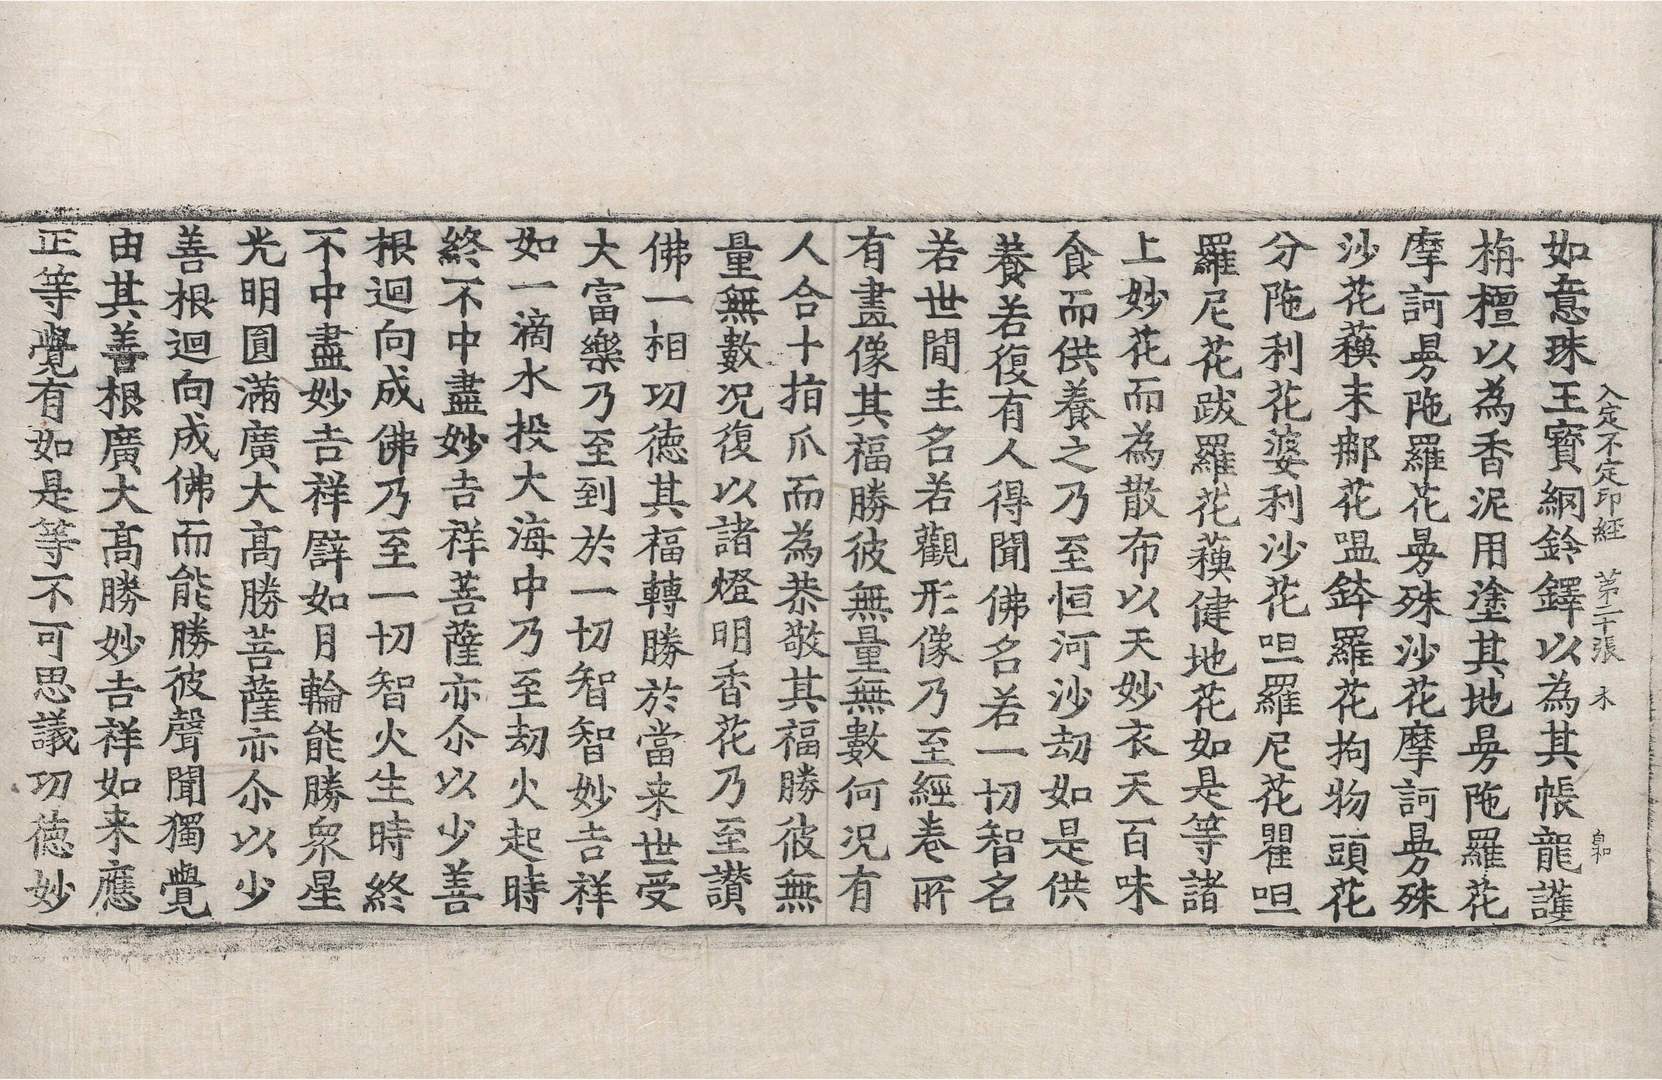 如意珠王寳網鈴鐸以為其帳龍護
栴檀以為香泥用塗其地曼陁羅花
摩訶曼陁羅花曼殊沙花摩訶曼殊
沙花蘓末郍花嗢鉢羅花拘物頭花
分陁利花婆利沙花呾羅尼花瞿呾
羅尼花跋羅花蘓健地花如是等諸
上妙花而為散布以天妙衣天百味
食而供養之乃至恒河沙劫如是供
養若復有人得聞佛名若一切智名
若世間主名若觀形像乃至經卷所
有畫像其福勝彼無量無數何况有
人合十指爪而為恭敬其福勝彼無
量無數况復以諸燈明香花乃至讃
佛一相功德其福轉勝於當来世受
大富樂乃至到於一切智智妙吉祥
如一滴水投大海中乃至劫火起時
終不中盡妙吉祥菩薩亦尒以少善
根迴向成佛乃至一切智火生時終
不中盡妙吉祥譬如月輪能勝衆星
光明圓滿廣大髙勝菩薩亦尒以少
善根迴向成佛而能勝彼聲聞獨覺
由其善根廣大髙勝妙吉祥如来應
正等覺有如是等不可思議功德妙
入定不定印經 第二十張 木